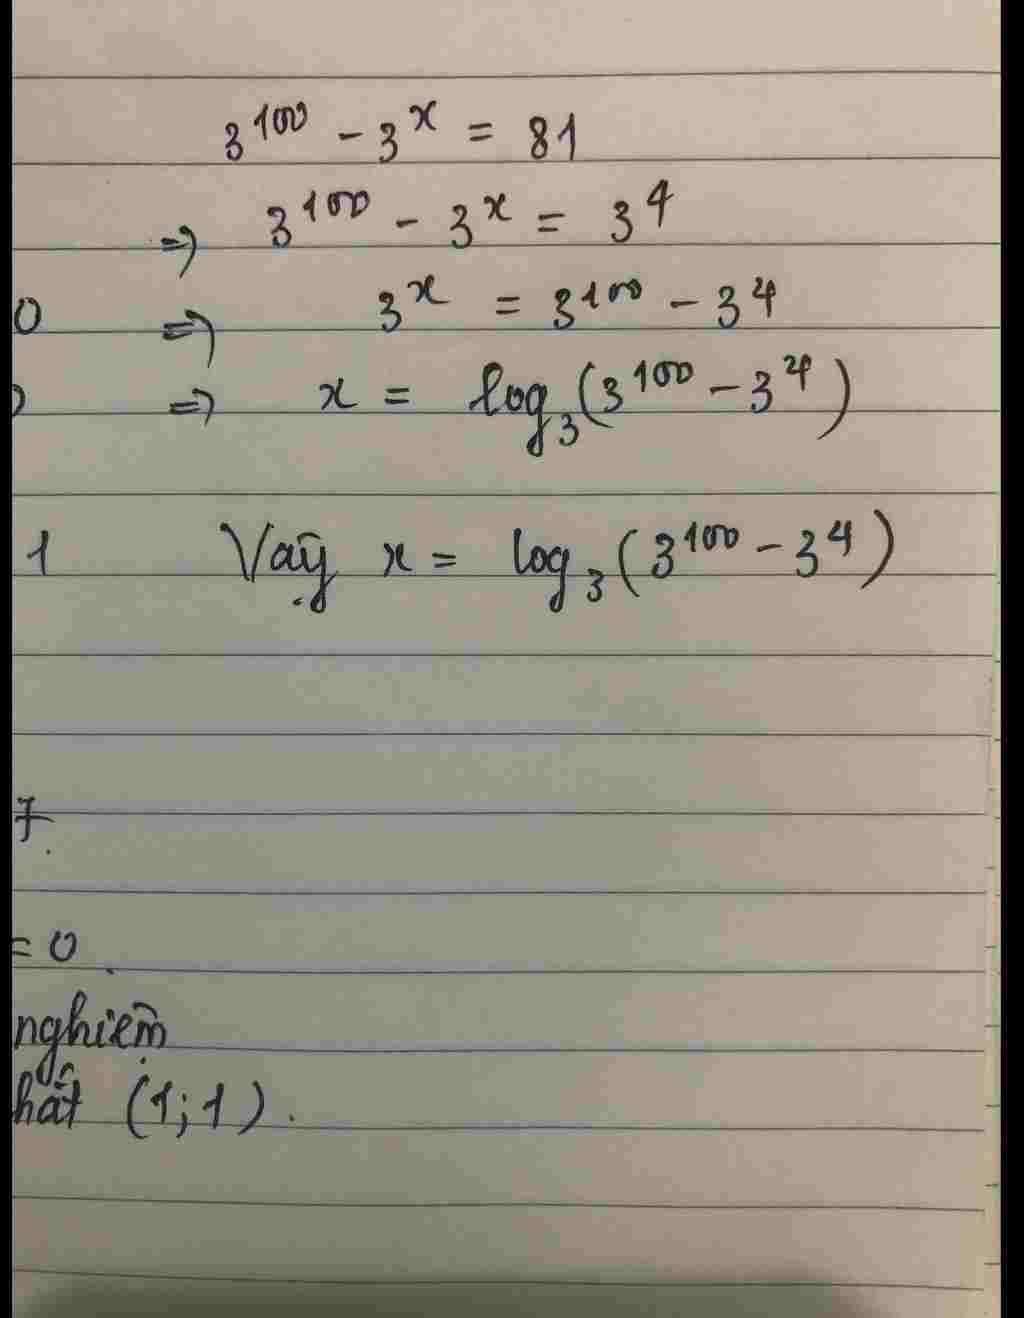 3^100 - 3^x = 81
=> 3^100 - 3^x = 3^4
0 => 3^x = 3^100 - 3^4
=> x = log_3(3^100 - 3^4)
1 Vậy x = log_3(3^100 - 3^4)
7.
= 0.
nghiệm
hất (1;1).